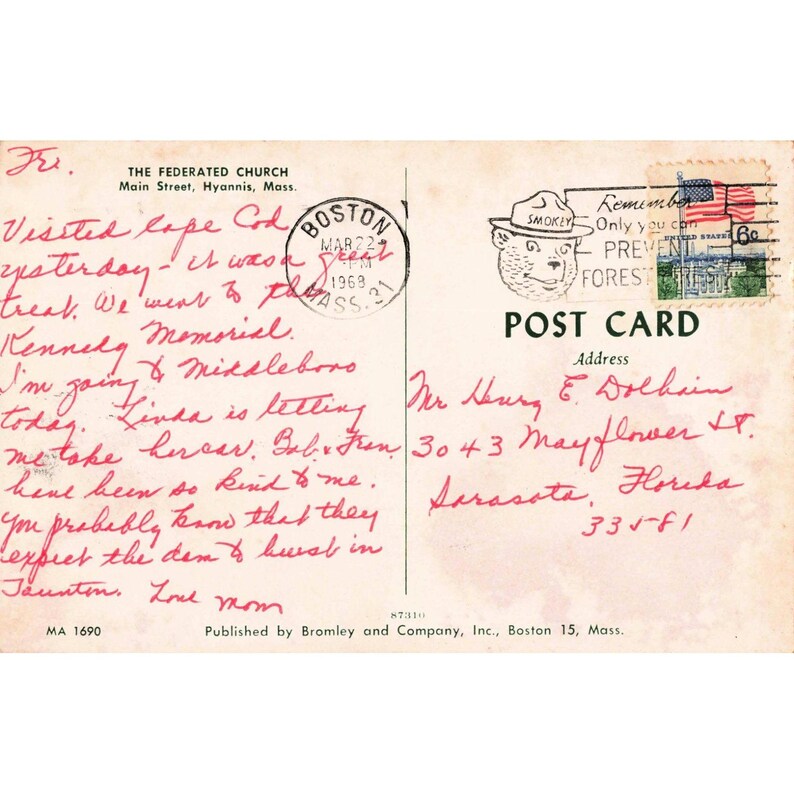 Fri.
THE FEDERATED CHURCH
Main Street, Hyannis, Mass.
Visited Cape Cod
yesterday - it was a great
treat. We went to the
Kennedy Memorial.
I'm going to Middleboro
today. Linda is letting
me take her car. Bob & Fran
have been so kind to me.
You probably know that they
expect the dam to burst in
Taunton. Love Mom
BOSTON
MAR 22
PM
1968
MASS. 31
SMOKEY
Remember
Only you can
PREVENT
FOREST FIRES
UNITED STATES
6c
POST CARD
Address
Mr Henry E. Dolhain
3043 Mayflower St.
Sarasota, Florida
33581
87310
MA 1690
Published by Bromley and Company, Inc., Boston 15, Mass.